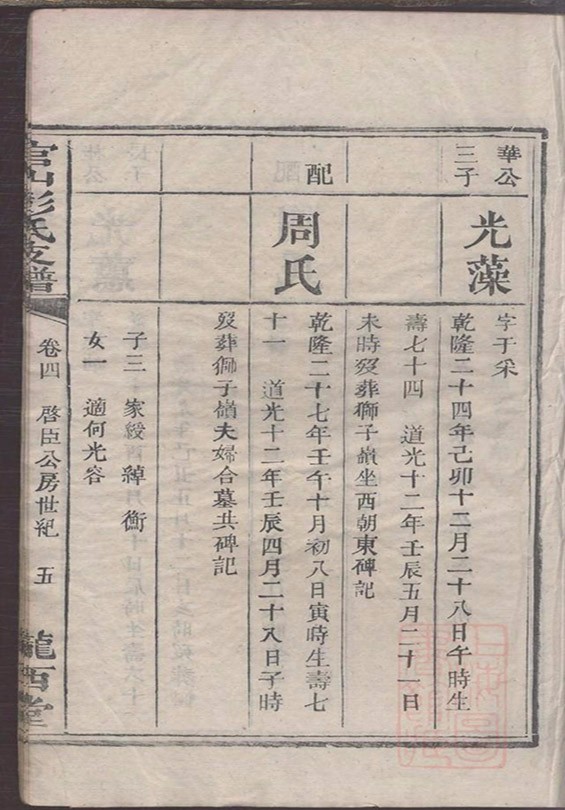 華公
三子
光藻
字于采
乾隆二十四年己卯十二月二十八日午時生
壽七十四　道光十二年壬辰五月二十一日
未時歿葬獅子嶺坐西朝東碑記
配
周氏
乾隆二十七年壬午十月初八日寅時生壽七
十一　道光十二年壬辰四月二十八日子時
歿葬獅子嶺夫婦合墓共碑記
子三　家綬　綽　衡
女一　適何光容
官山彭氏支譜
卷四　啓臣公房世紀　五
隴西堂